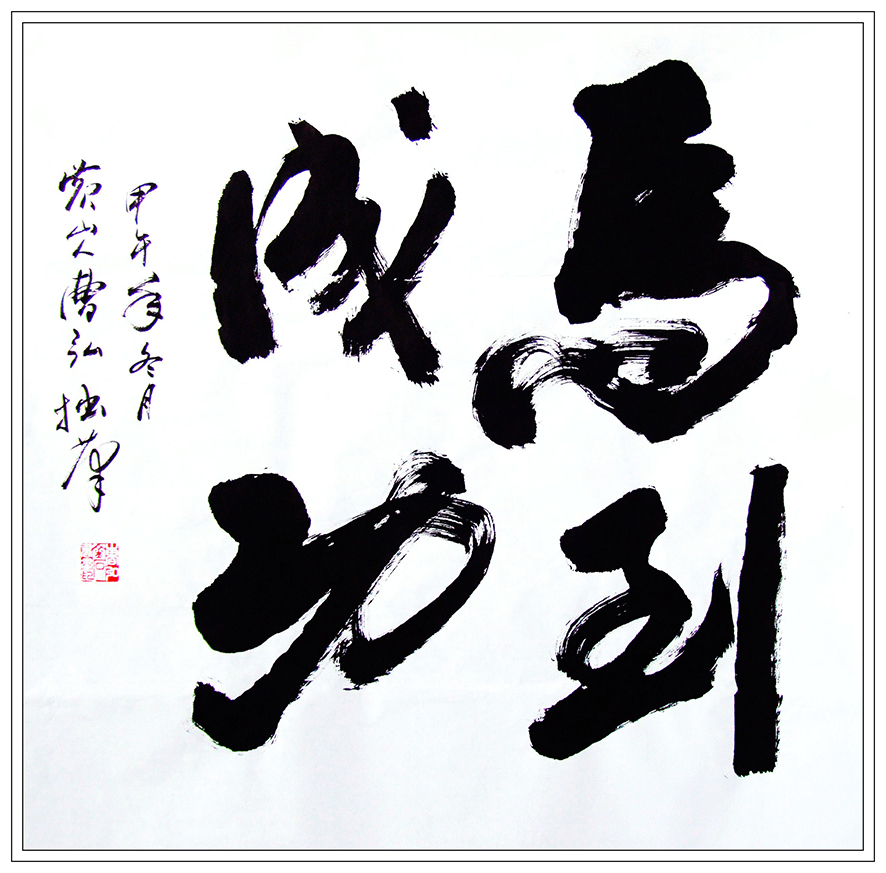 馬到
成功
甲午年冬月
黄山人曹弘拙筆